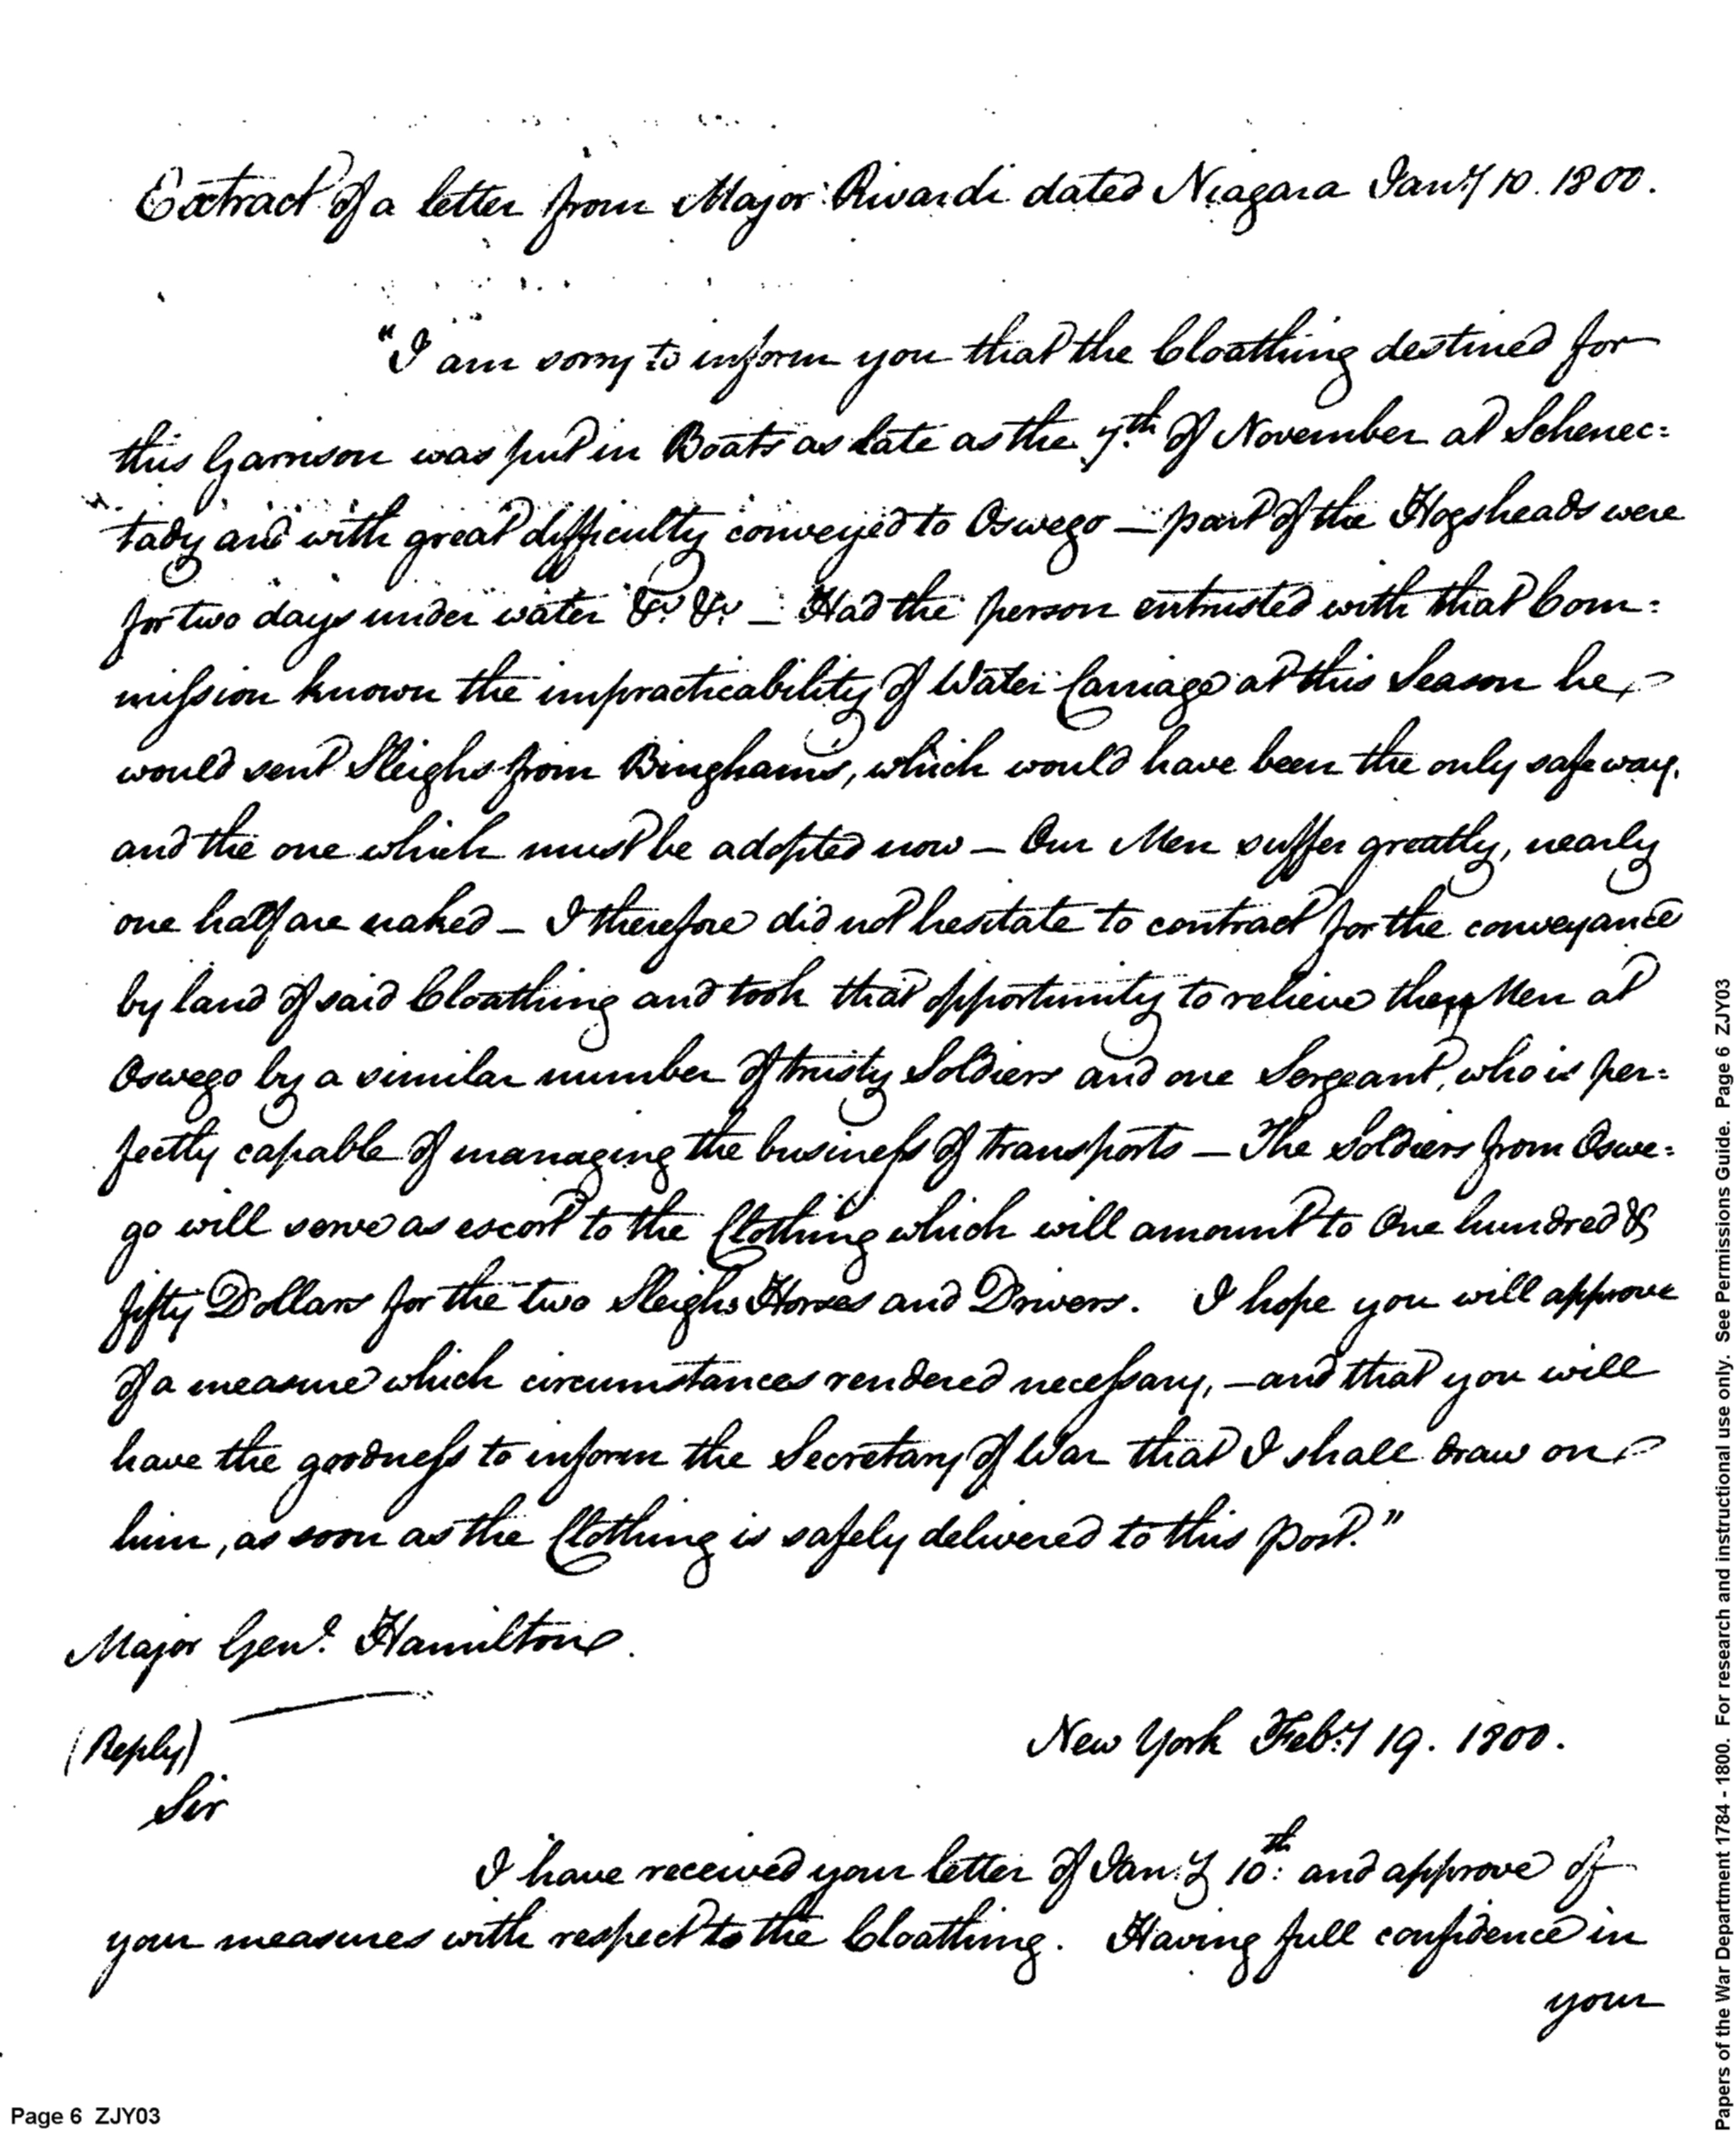 Extract of a letter from Major Rivardi dated Niagara Jany 10. 1800.
"I am sorry to inform you that the Cloathing destined for
this Garrison was put in Boats as late as the 7th of November at Schenec=
tady and with great difficulty conveyed to Oswego — part of the Hogsheads were
for two days under water &c &c — Had the person entrusted with that Com=
mission known the impracticability of Water Carriage at this Season he
would sent Sleighs from Binghams, which would have been the only safe way,
and the one which must be adopted now — Our Men suffer greatly, nearly
one half are naked — I therefore did not hesitate to contract for the conveyance
by land of said Cloathing and took that opportunity to relieve the Men at
Oswego by a similar number of trusty Soldiers and one Sergeant, who is per=
fectly capable of managing the business of transports — The Soldiers from Oswe=
go will serve as escort to the Clothing which will amount to One hundred &
fifty Dollars for the two Sleighs Horses and Drivers. I hope you will approve
of a measure which circumstances rendered necessary, — and that you will
have the goodness to inform the Secretary of War that I shall draw on
him, as soon as the Clothing is safely delivered to this post."
Major Genl. Hamilton.
(Reply)
New York Feby 19. 1800.
Sir
I have received your letter of Jany 10th: and approve of
your measures with respect to the Cloathing. Having full confidence in
your
Page 6 ZJY03
Papers of the War Department 1784 - 1800. For research and instructional use only. See Permissions Guide. Page 6 ZJY03